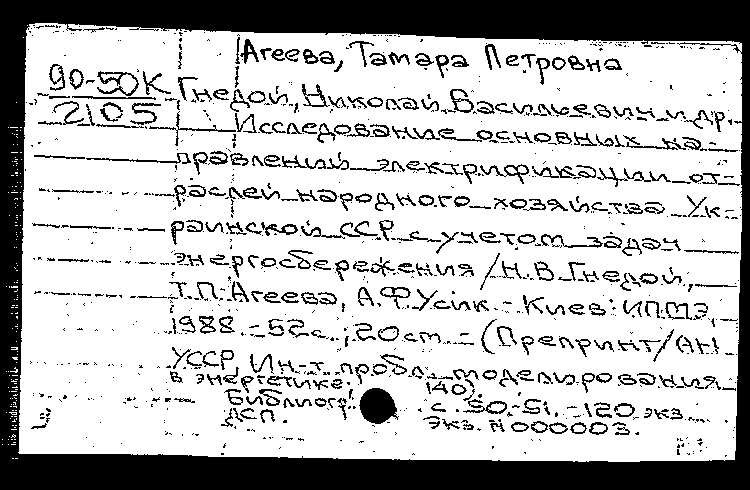 Агеева, Тамара Петровна
90-50К
2105
Гнедой, Николай Васильевич и др.
Исследование основных на-
правлений электрификации от-
раслей народного хозяйства Ук-
раинской ССР с учетом задач
энергосбережения / Н.В. Гнедой,
Т.П. Агеева, А.Ф. Усік. - Киев: ИПМЭ,
1988. - 52с.; 20см. - (Препринт / АН
УССР, Ин-т пробл. моделирования
в энергетике. 140).
Библиогр. с. 50-51. - 120 экз.
ДСП. Экз. N 000003.